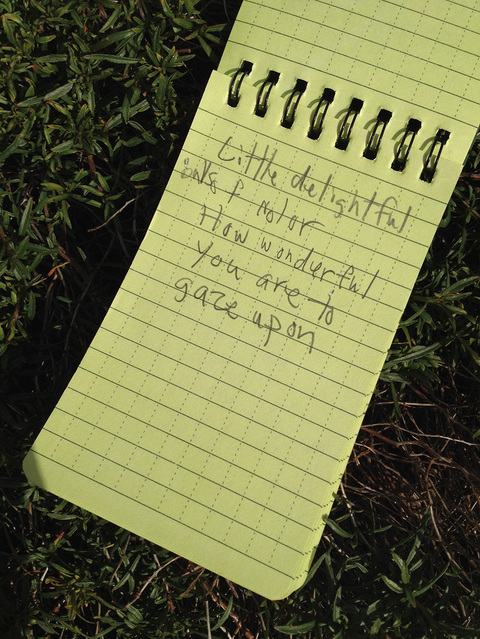 Little delightful
How wonderful
you are to
gaze upon